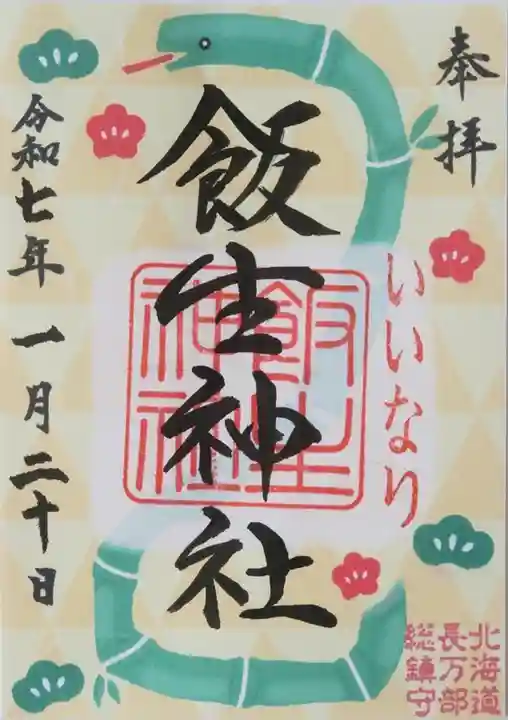 奉拝
いいなり
飯生神社
飯生神社
令和七年一月二十日
北海道
長万部
総鎮守